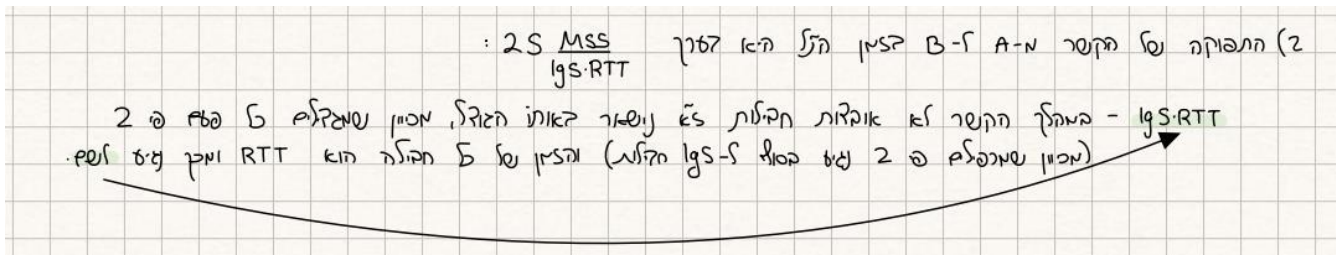 2) התפוקה של הקשר מ-A ל-B בזמן הנ"ל היא בערך 2S MSS / lgS·RTT :
lgS·RTT - במהלך הקשר לא אובדות חבילות אז נישאר באותו הגודל, מכיוון שמגדלים כל פעם פי 2
(מכיוון שמכפלים פי 2 נגיע בסוף ל-lgS חבילות) והזמן של כל חבילה הוא RTT ומכך נגיע לשם.